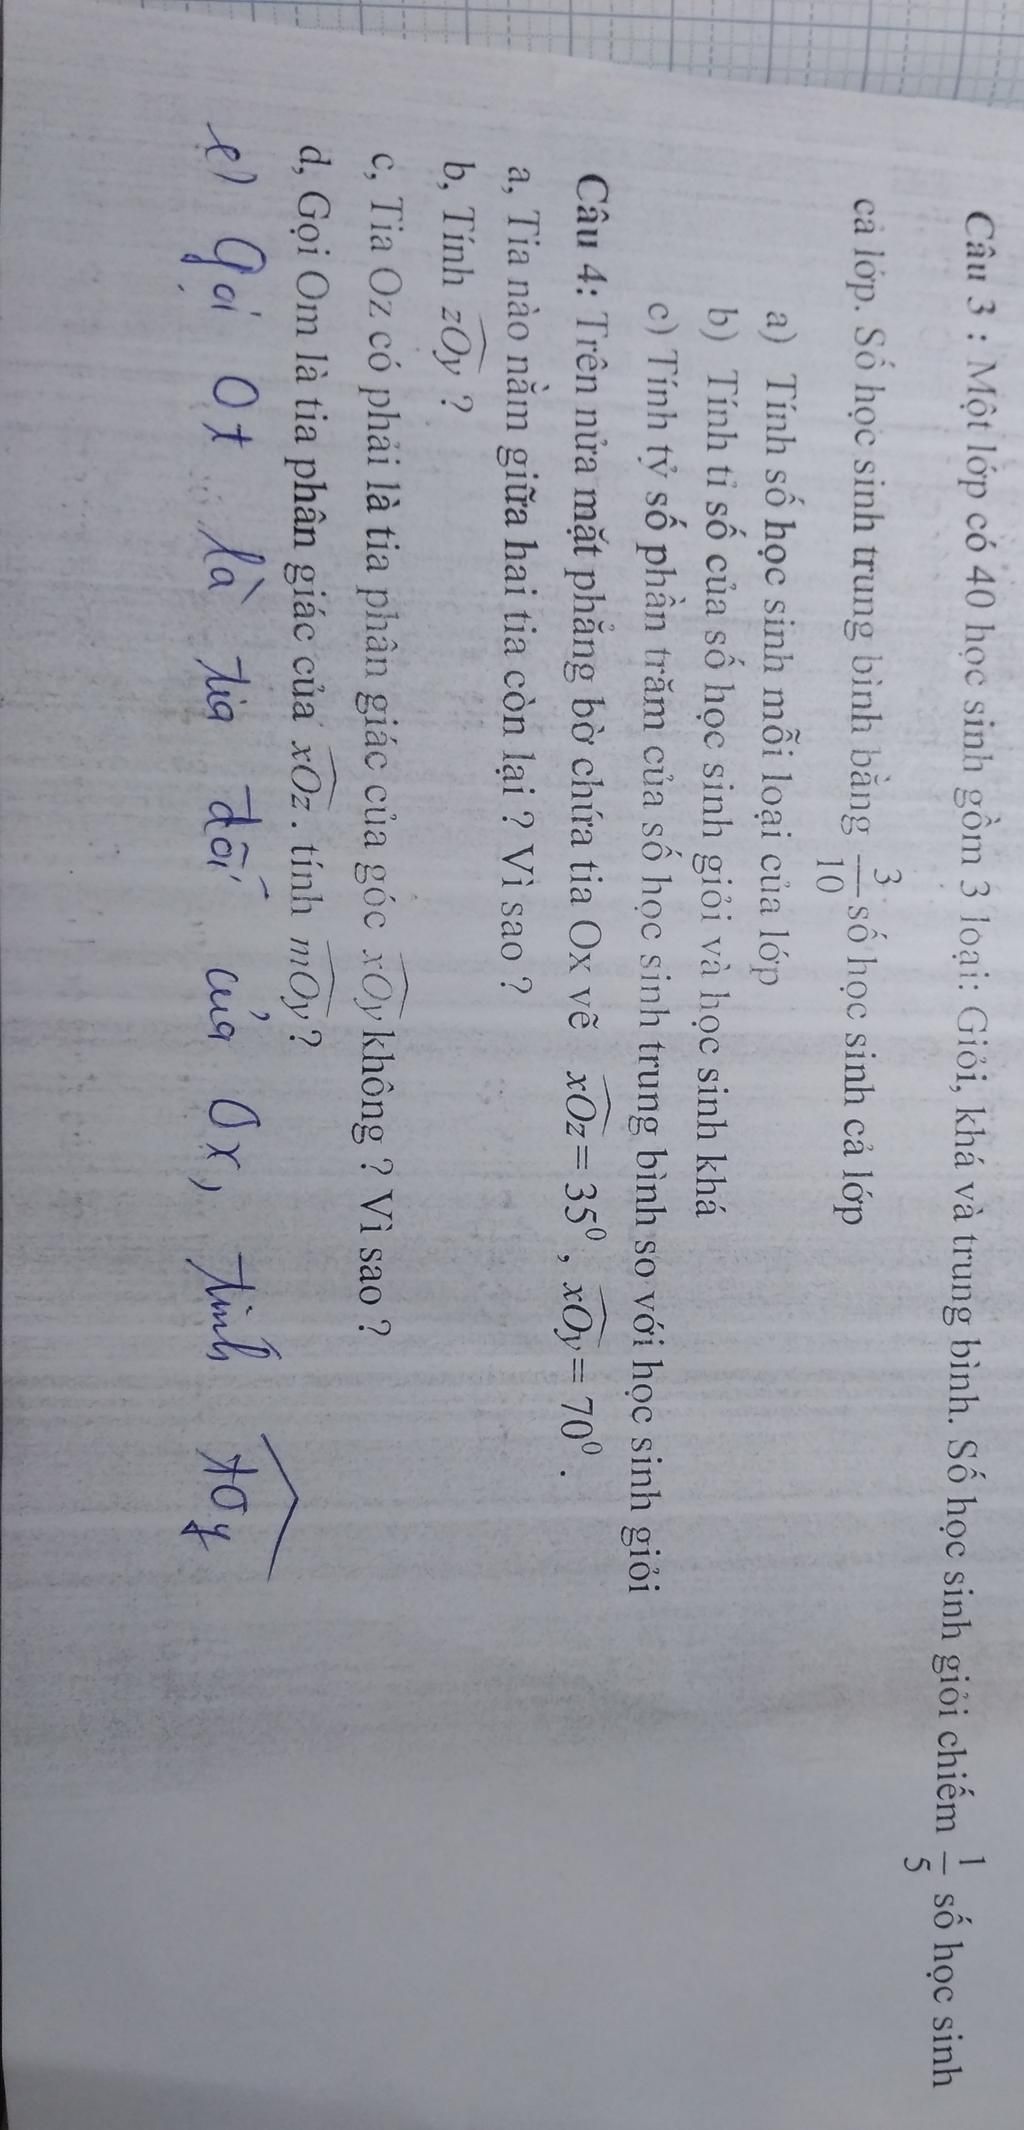 Câu 3 : Một lớp có 40 học sinh gồm 3 loại: Giỏi, khá và trung bình. Số học sinh giỏi chiếm 1/5 số học sinh
cả lớp. Số học sinh trung bình bằng 3/10 số học sinh cả lớp
a) Tính số học sinh mỗi loại của lớp
b) Tính tỉ số của số học sinh giỏi và học sinh khá
c) Tính tỷ số phần trăm của số học sinh trung bình so với học sinh giỏi
Câu 4: Trên nửa mặt phẳng bờ chứa tia Ox vẽ xOz = 35⁰ , xOy = 70⁰ .
a, Tia nào nằm giữa hai tia còn lại ? Vì sao ?
b, Tính zOy ?
c, Tia Oz có phải là tia phân giác của góc xOy không ? Vì sao ?
d, Gọi Om là tia phân giác của xOz . tính mOy ?
e) Gọi Ot là tia đối của Ox, tính tOy